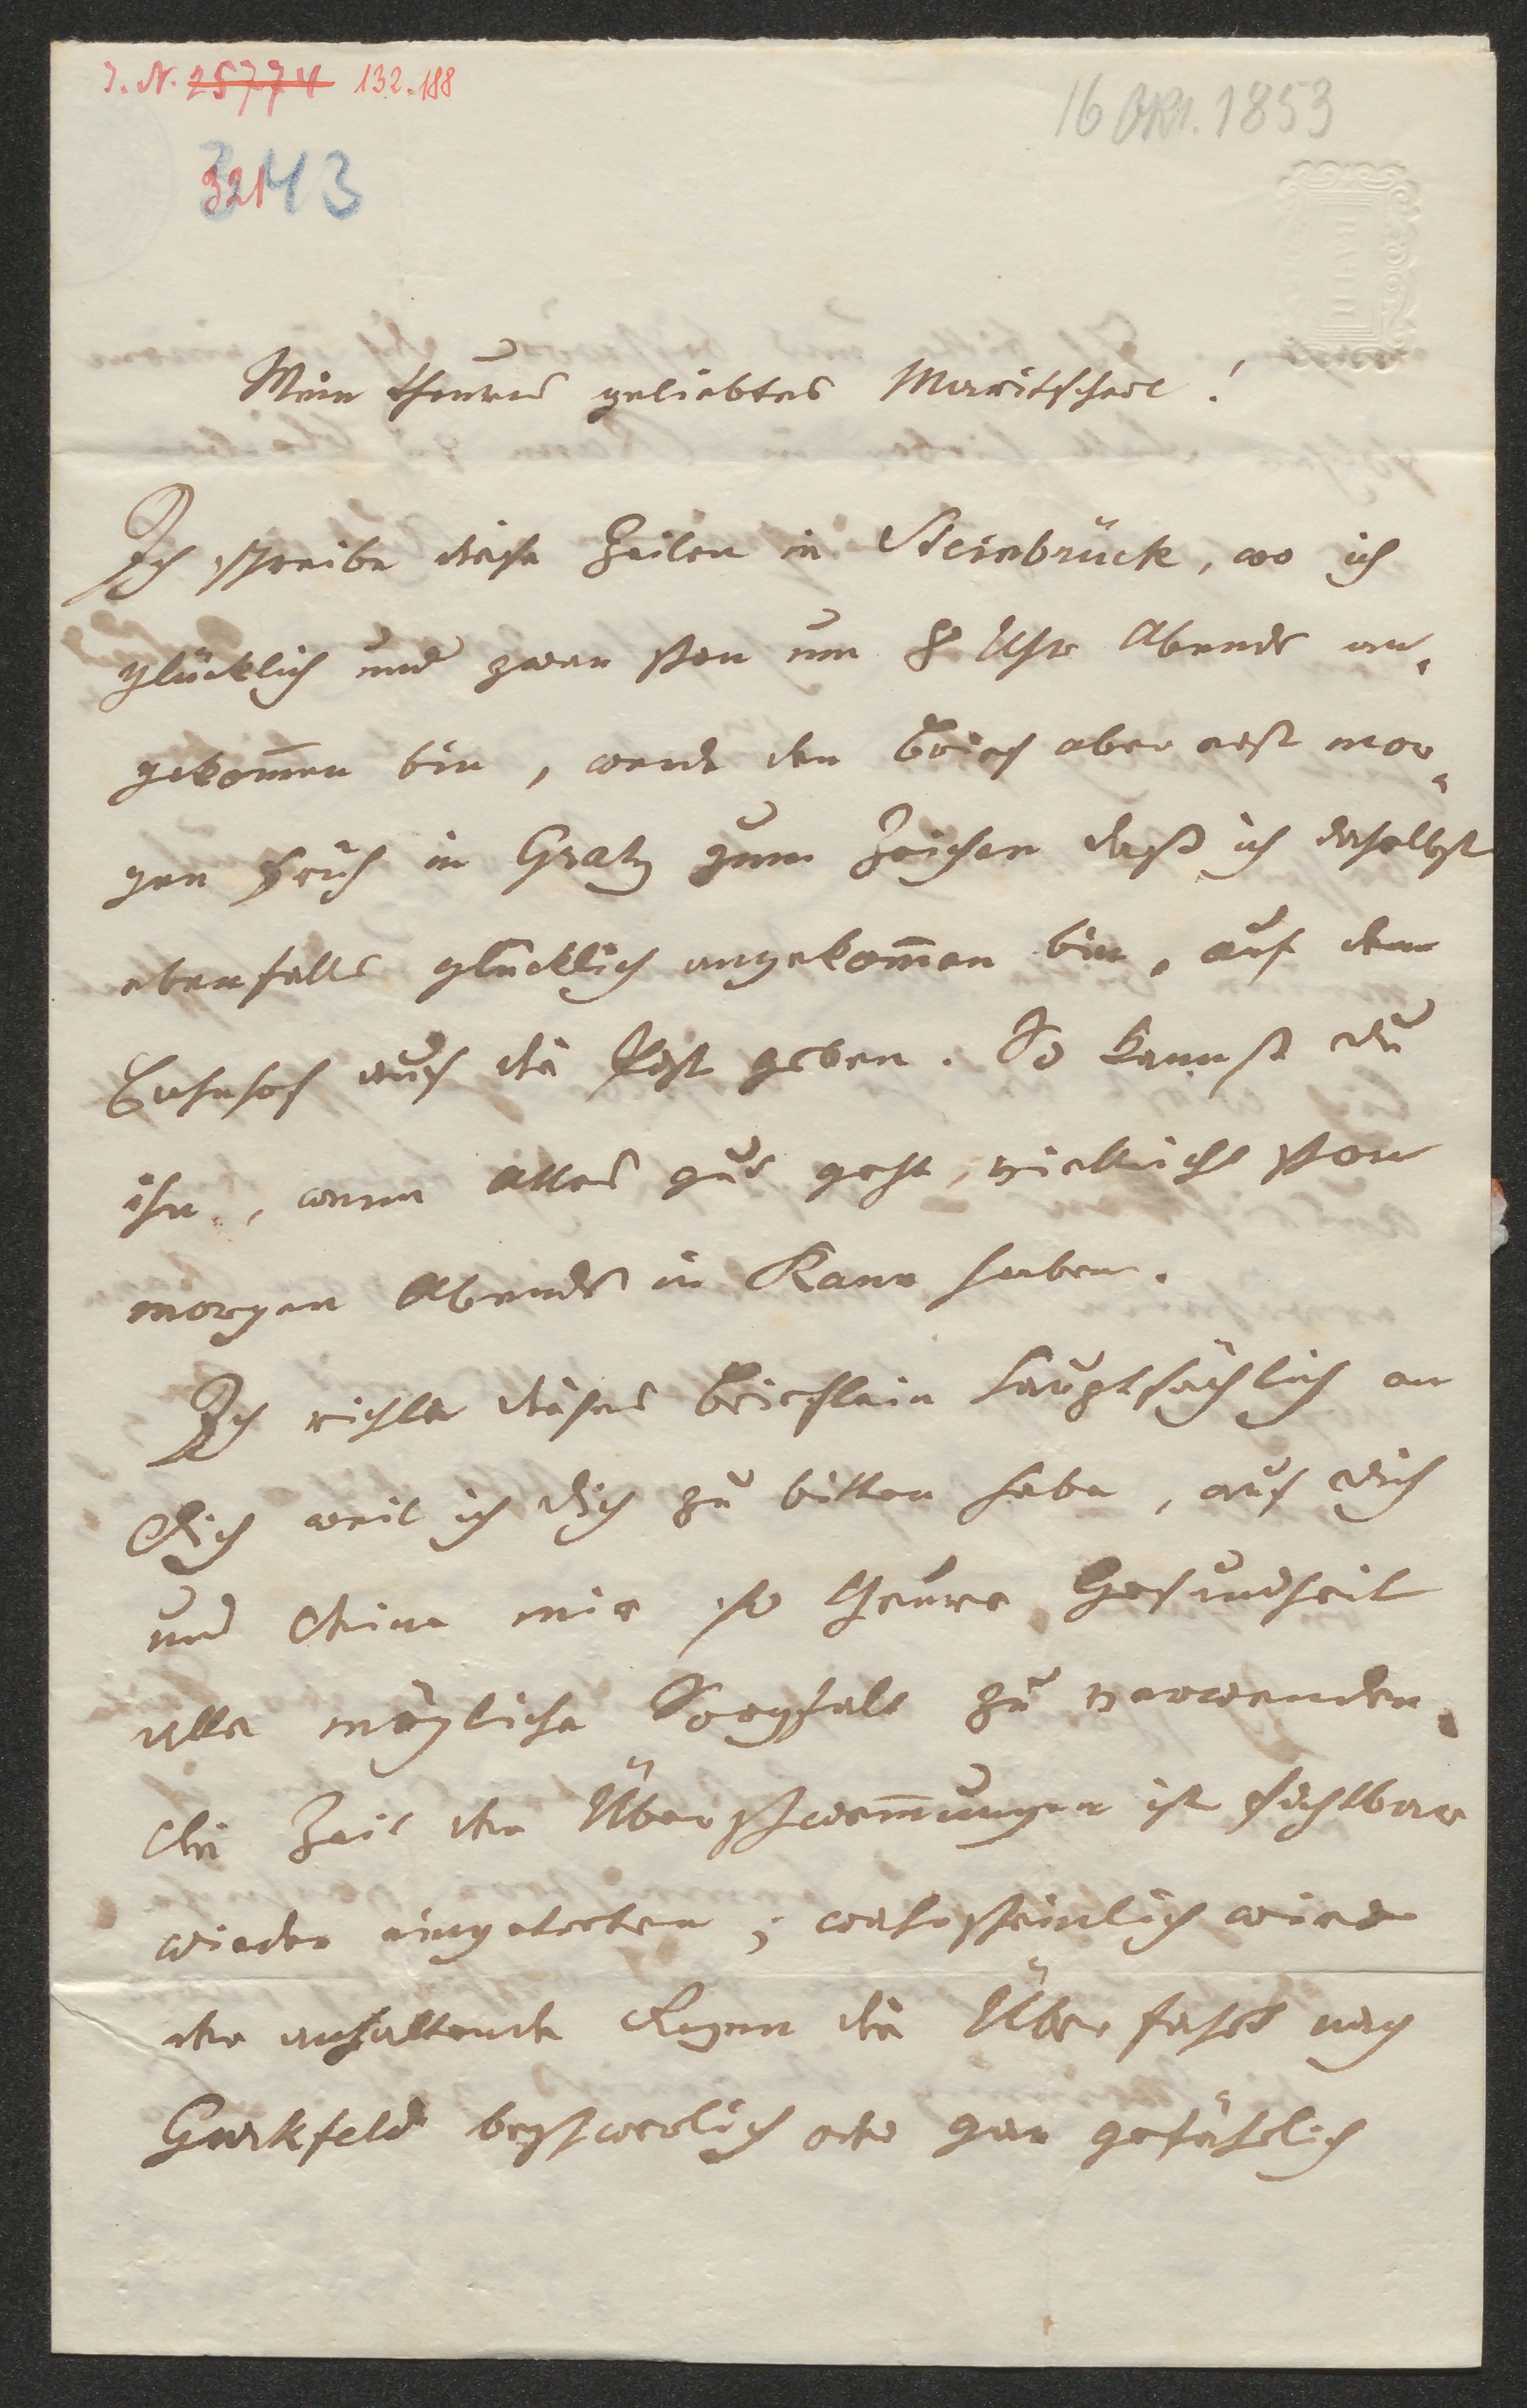 J. N. 25774 132.188
16 Okt. 1853
321
343
Mein theures geliebtes Maritscherl!
Ich schreibe diese Zeilen in Steinbrück, wo ich
glücklich und zwar schon um 8 Uhr Abends an-
gekom̄en bin, werde den Brief aber erst mor-
gen früh in Gratz zum Zeichen daß ich daselbst
ebenfalls glücklich angekom̄en bin, auf dem
Bahnhof auf die Post geben. So kannst du
ihn, wenn Alles gut geht, vielleicht schon
morgen Abends in Rann haben.
Ich richte dieses Brieflein hauptsächlich an
Dich weil ich Dich zu bitten habe, auf Dich
und Deine mir so theure Gesundheit
alle mögliche Sorgfalt zu verwenden.
Die Zeit der Überschwem̄ungen ist sichtbar
wieder eingetreten; wahrscheinlich wird
der anhaltende Regen die Überfahrt nach
Gurkfeld beschwerlich oder gar gefährlich